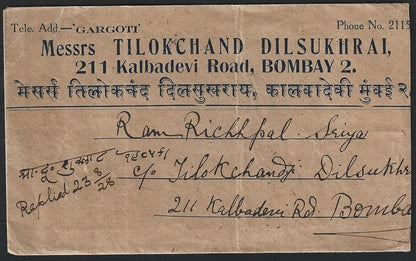 Tele. Add.—'GARGOTI'
Phone No. 2115
Messrs TILOKCHAND DILSUKHRAI,
211 Kalbadevi Road, BOMBAY 2.
मेसर्स तिलोकचंद दिलसुखराय, कालबादेवी मुंबई २
Ram Richhpal Sriya
c/o Tilokchandji Dilsukhr
211 Kalbadevi Rd. Bomba
Replied 23 8/28